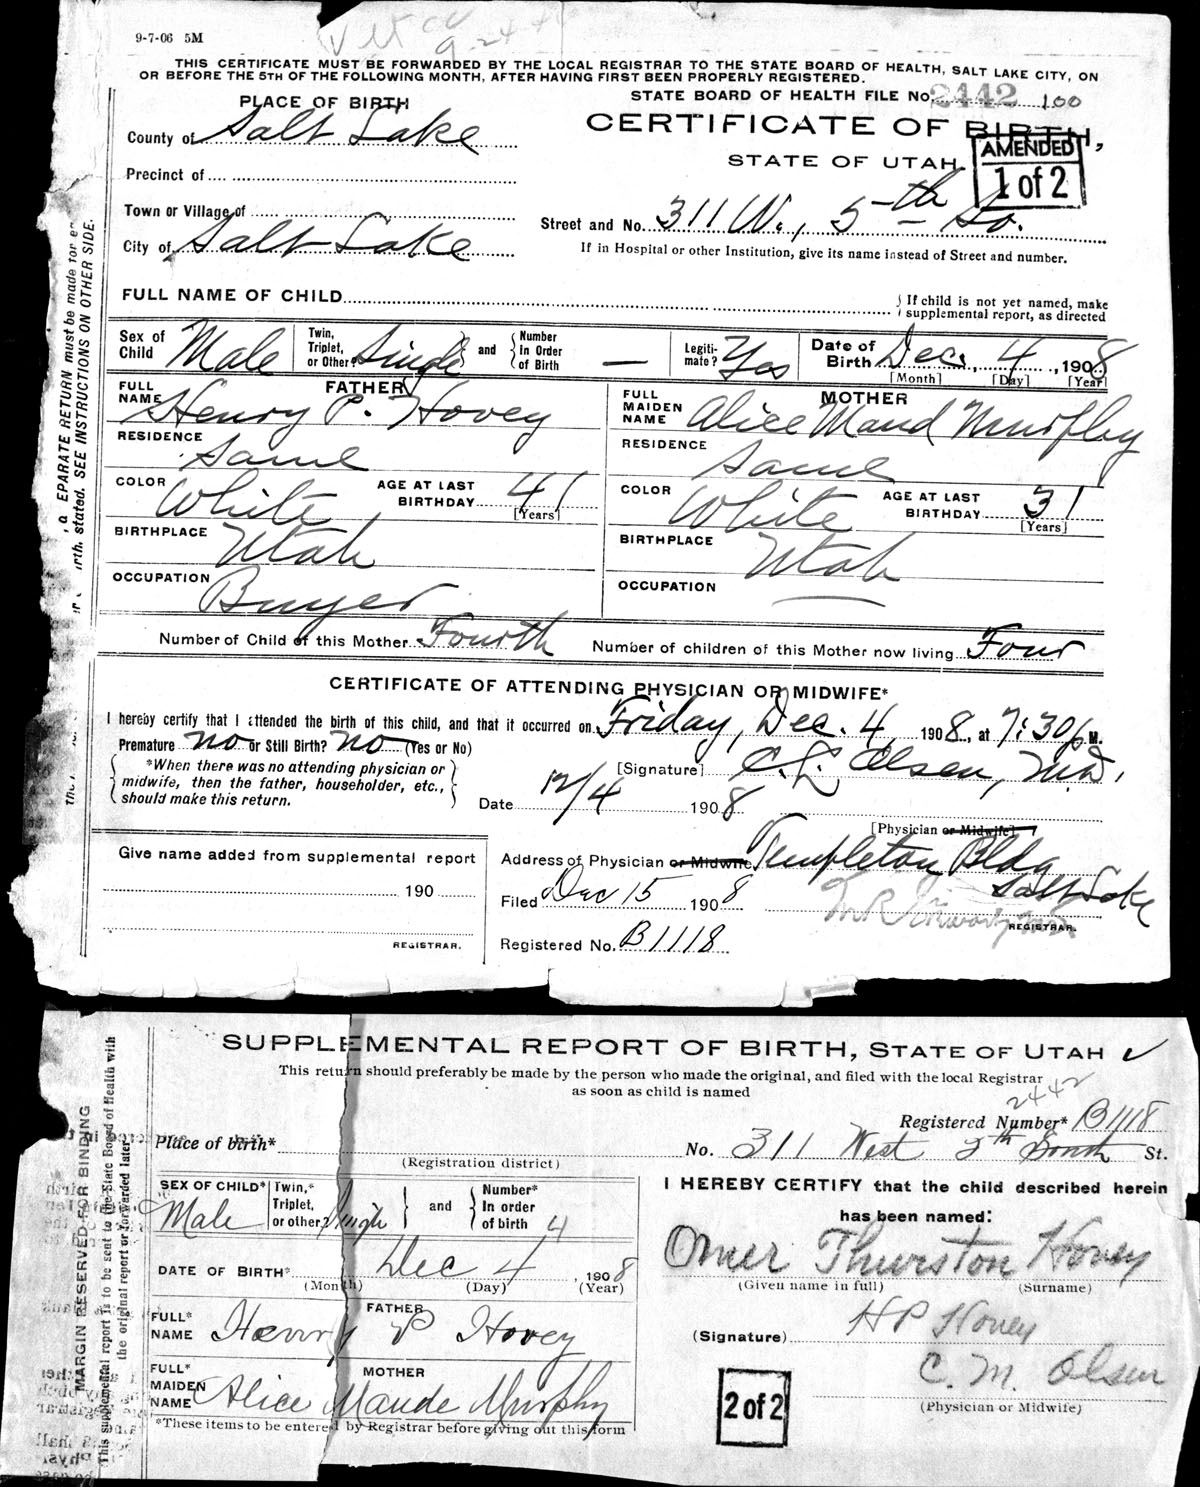 9-7-06 5M
THIS CERTIFICATE MUST BE FORWARDED BY THE LOCAL REGISTRAR TO THE STATE BOARD OF HEALTH, SALT LAKE CITY, ON
OR BEFORE THE 5TH OF THE FOLLOWING MONTH, AFTER HAVING FIRST BEEN PROPERLY REGISTERED.
STATE BOARD OF HEALTH FILE No. 2442 100
PLACE OF BIRTH
CERTIFICATE OF BIRTH,
STATE OF UTAH.
AMENDED
1 of 2
County of Salt Lake
Precinct of
Town or Village of
City of Salt Lake
Street and No. 311 W., 5th So.
If in Hospital or other Institution, give its name instead of Street and number.
FULL NAME OF CHILD
If child is not yet named, make
supplemental report, as directed
Sex of Child Male Twin, Triplet, or Other? Single and Number In Order of Birth — Legiti-mate? Yes Date of Birth Dec. 4, 1908
[Month] [Day] [Year]
FATHER
FULL NAME Henry P. Hovey
RESIDENCE Same
COLOR White AGE AT LAST BIRTHDAY 41
[Years]
BIRTHPLACE Utah
OCCUPATION Buyer
MOTHER
FULL MAIDEN NAME Alice Maud Murphy
RESIDENCE Same
COLOR White AGE AT LAST BIRTHDAY 31
[Years]
BIRTHPLACE Utah
OCCUPATION —
Number of Child of this Mother Fourth Number of children of this Mother now living Four
CERTIFICATE OF ATTENDING PHYSICIAN OR MIDWIFE*
I hereby certify that I attended the birth of this child, and that it occurred on Friday, Dec. 4, 1908, at 7:30 p M.
Premature no or Still Birth? no (Yes or No)
*When there was no attending physician or
midwife, then the father, householder, etc.,
should make this return.
[Signature] C. L. Olsen, M.D.
Date 12/4 1908
[Physician or Midwife]
Address of Physician or Midwife Templeton Bldg
Salt Lake
Filed Dec 15 1908
REGISTRAR.
Registered No. B1118
Give name added from supplemental report
190
REGISTRAR.
SEE INSTRUCTIONS ON OTHER SIDE.
SUPPLEMENTAL REPORT OF BIRTH, STATE OF UTAH
This return should preferably be made by the person who made the original, and filed with the local Registrar
as soon as child is named
2442
Registered Number* B1118
Place of birth*
(Registration district)
No. 311 West 5th South St.
SEX OF CHILD* Male Twin,* Triplet, or other Single and Number* In order of birth 4
DATE OF BIRTH* Dec 4, 1908
(Month) (Day) (Year)
FATHER
FULL* NAME Henry P Hovey
MOTHER
FULL* MAIDEN NAME Alice Maude Murphy
*These items to be entered by Registrar before giving out this form
I HEREBY CERTIFY that the child described herein
has been named:
Omer Thurston Hovey
(Given name in full) (Surname)
(Signature) H P Hovey
C. M. Olsen
(Physician or Midwife)
2 of 2
MARGIN RESERVED FOR BINDING
This supplemental report is to be sent to the State Board of Health with
the original report or forwarded later